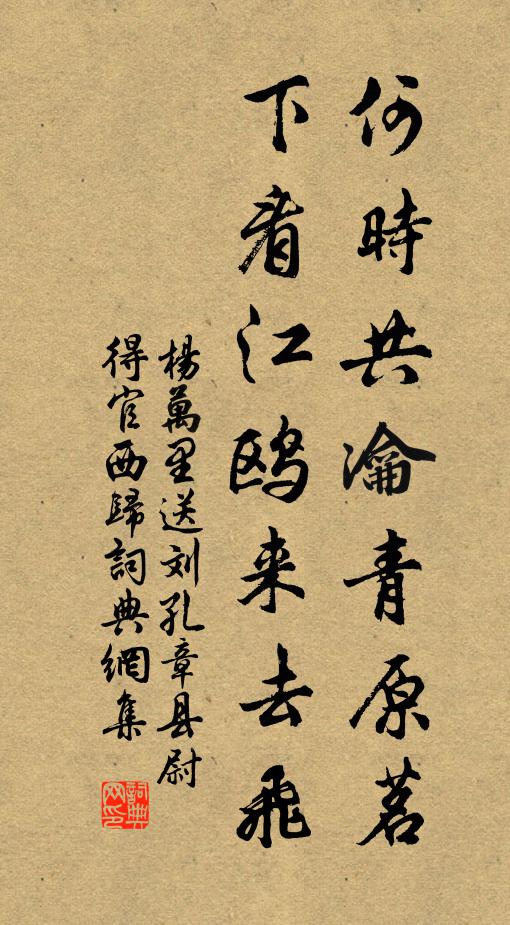 何時共瀹青原茗
下看江鷗来去飛
楊萬里送刘孔章县尉
得官西歸詞典網集
詞典网印